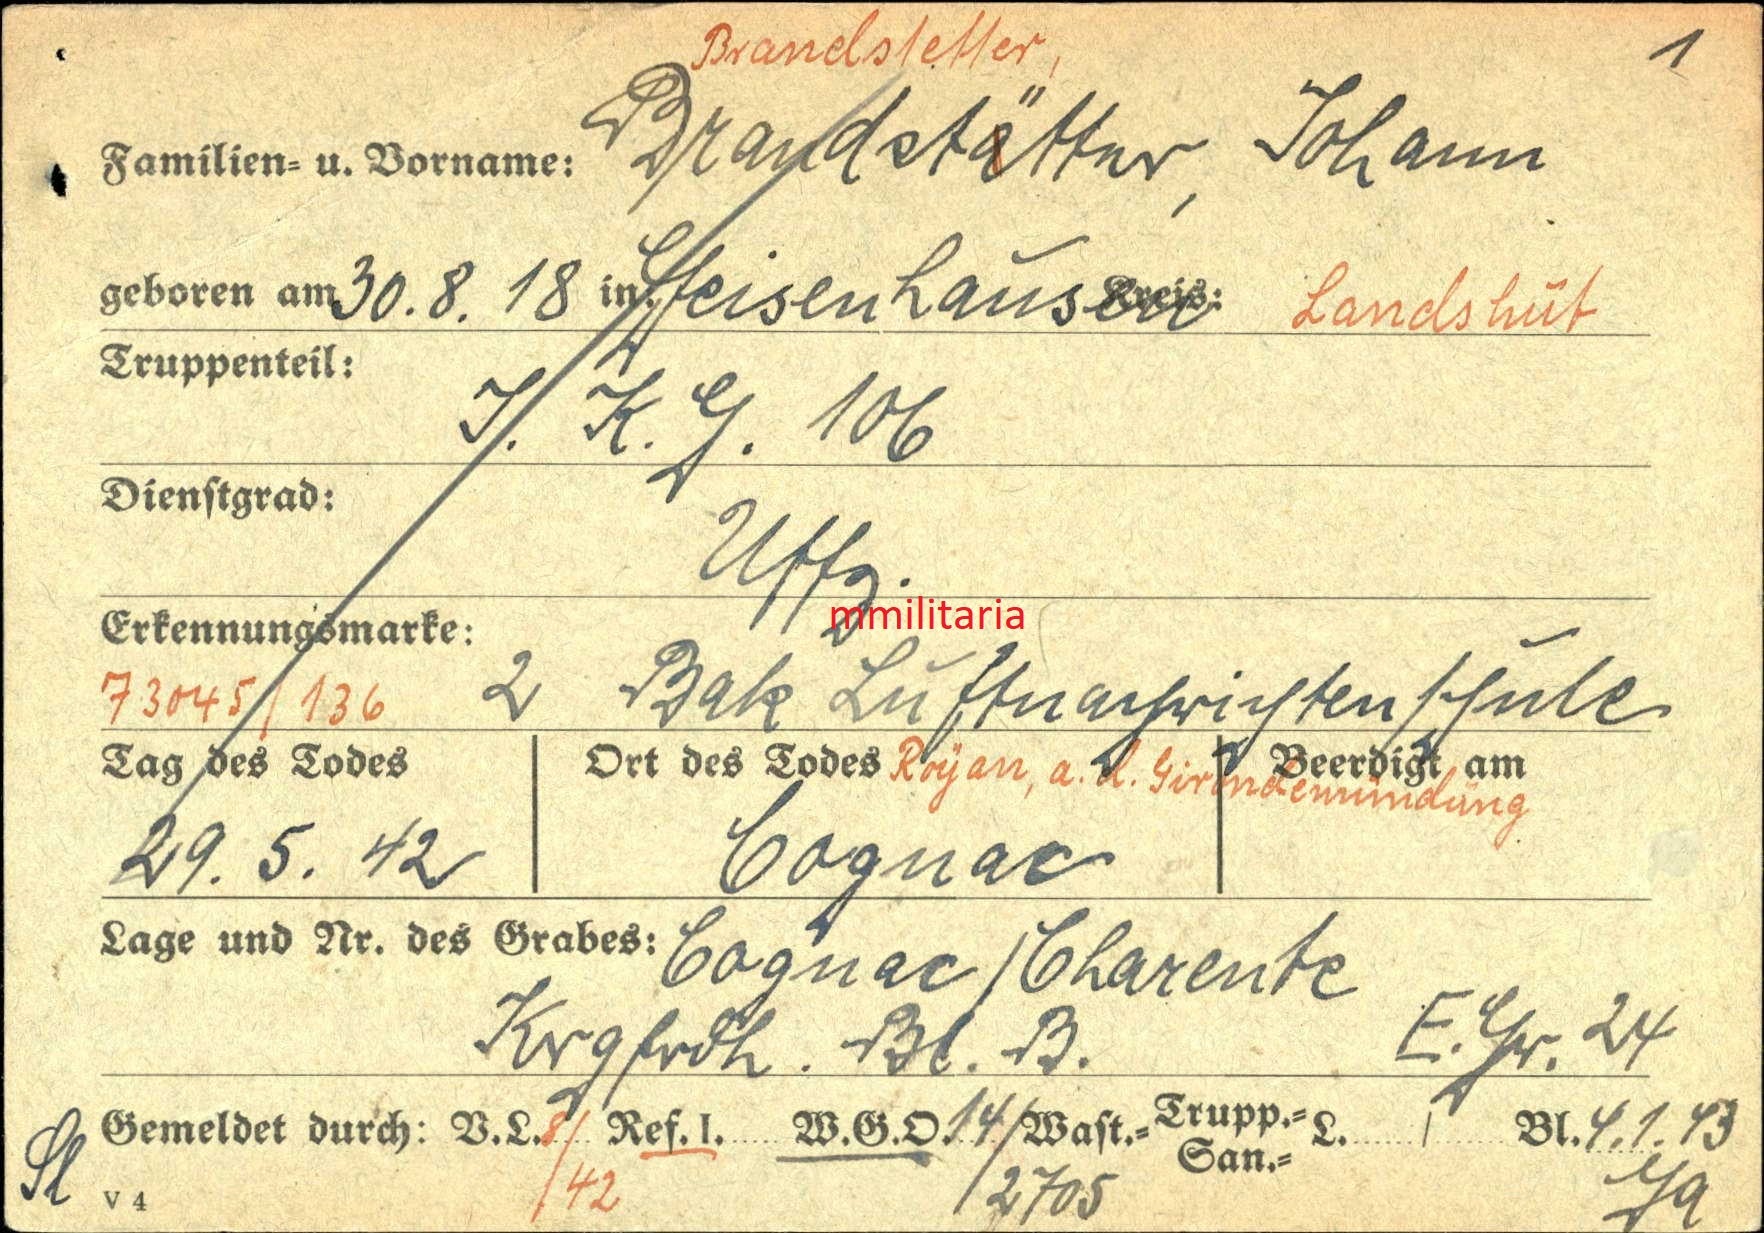 Brandstetter,
1
Familien= u. Vorname: Brandstätter, Johann
geboren am 30.8.18 in Geisenhausen Kreis: Landshut
Truppenteil:
I. K. G. 106
Dienstgrad:
Uffz.
mmilitaria
Erkennungsmarke:
73045/136 2 Bak Luftnachrichtenschule
Tag des Todes Ort des Todes Royan, a. d. Girondemündung Beerdigt am
29. 5. 42 Cognac
Lage und Nr. des Grabes: Cognac/Charente
Krgfrdh. Bl. B. E. Gr. 24
Gemeldet durch: V.L. 8/42 Ref. I. W.G.O. 14/2705 Wast.= Trupp.= San.= L. / Bl. 4.1.43
V 4